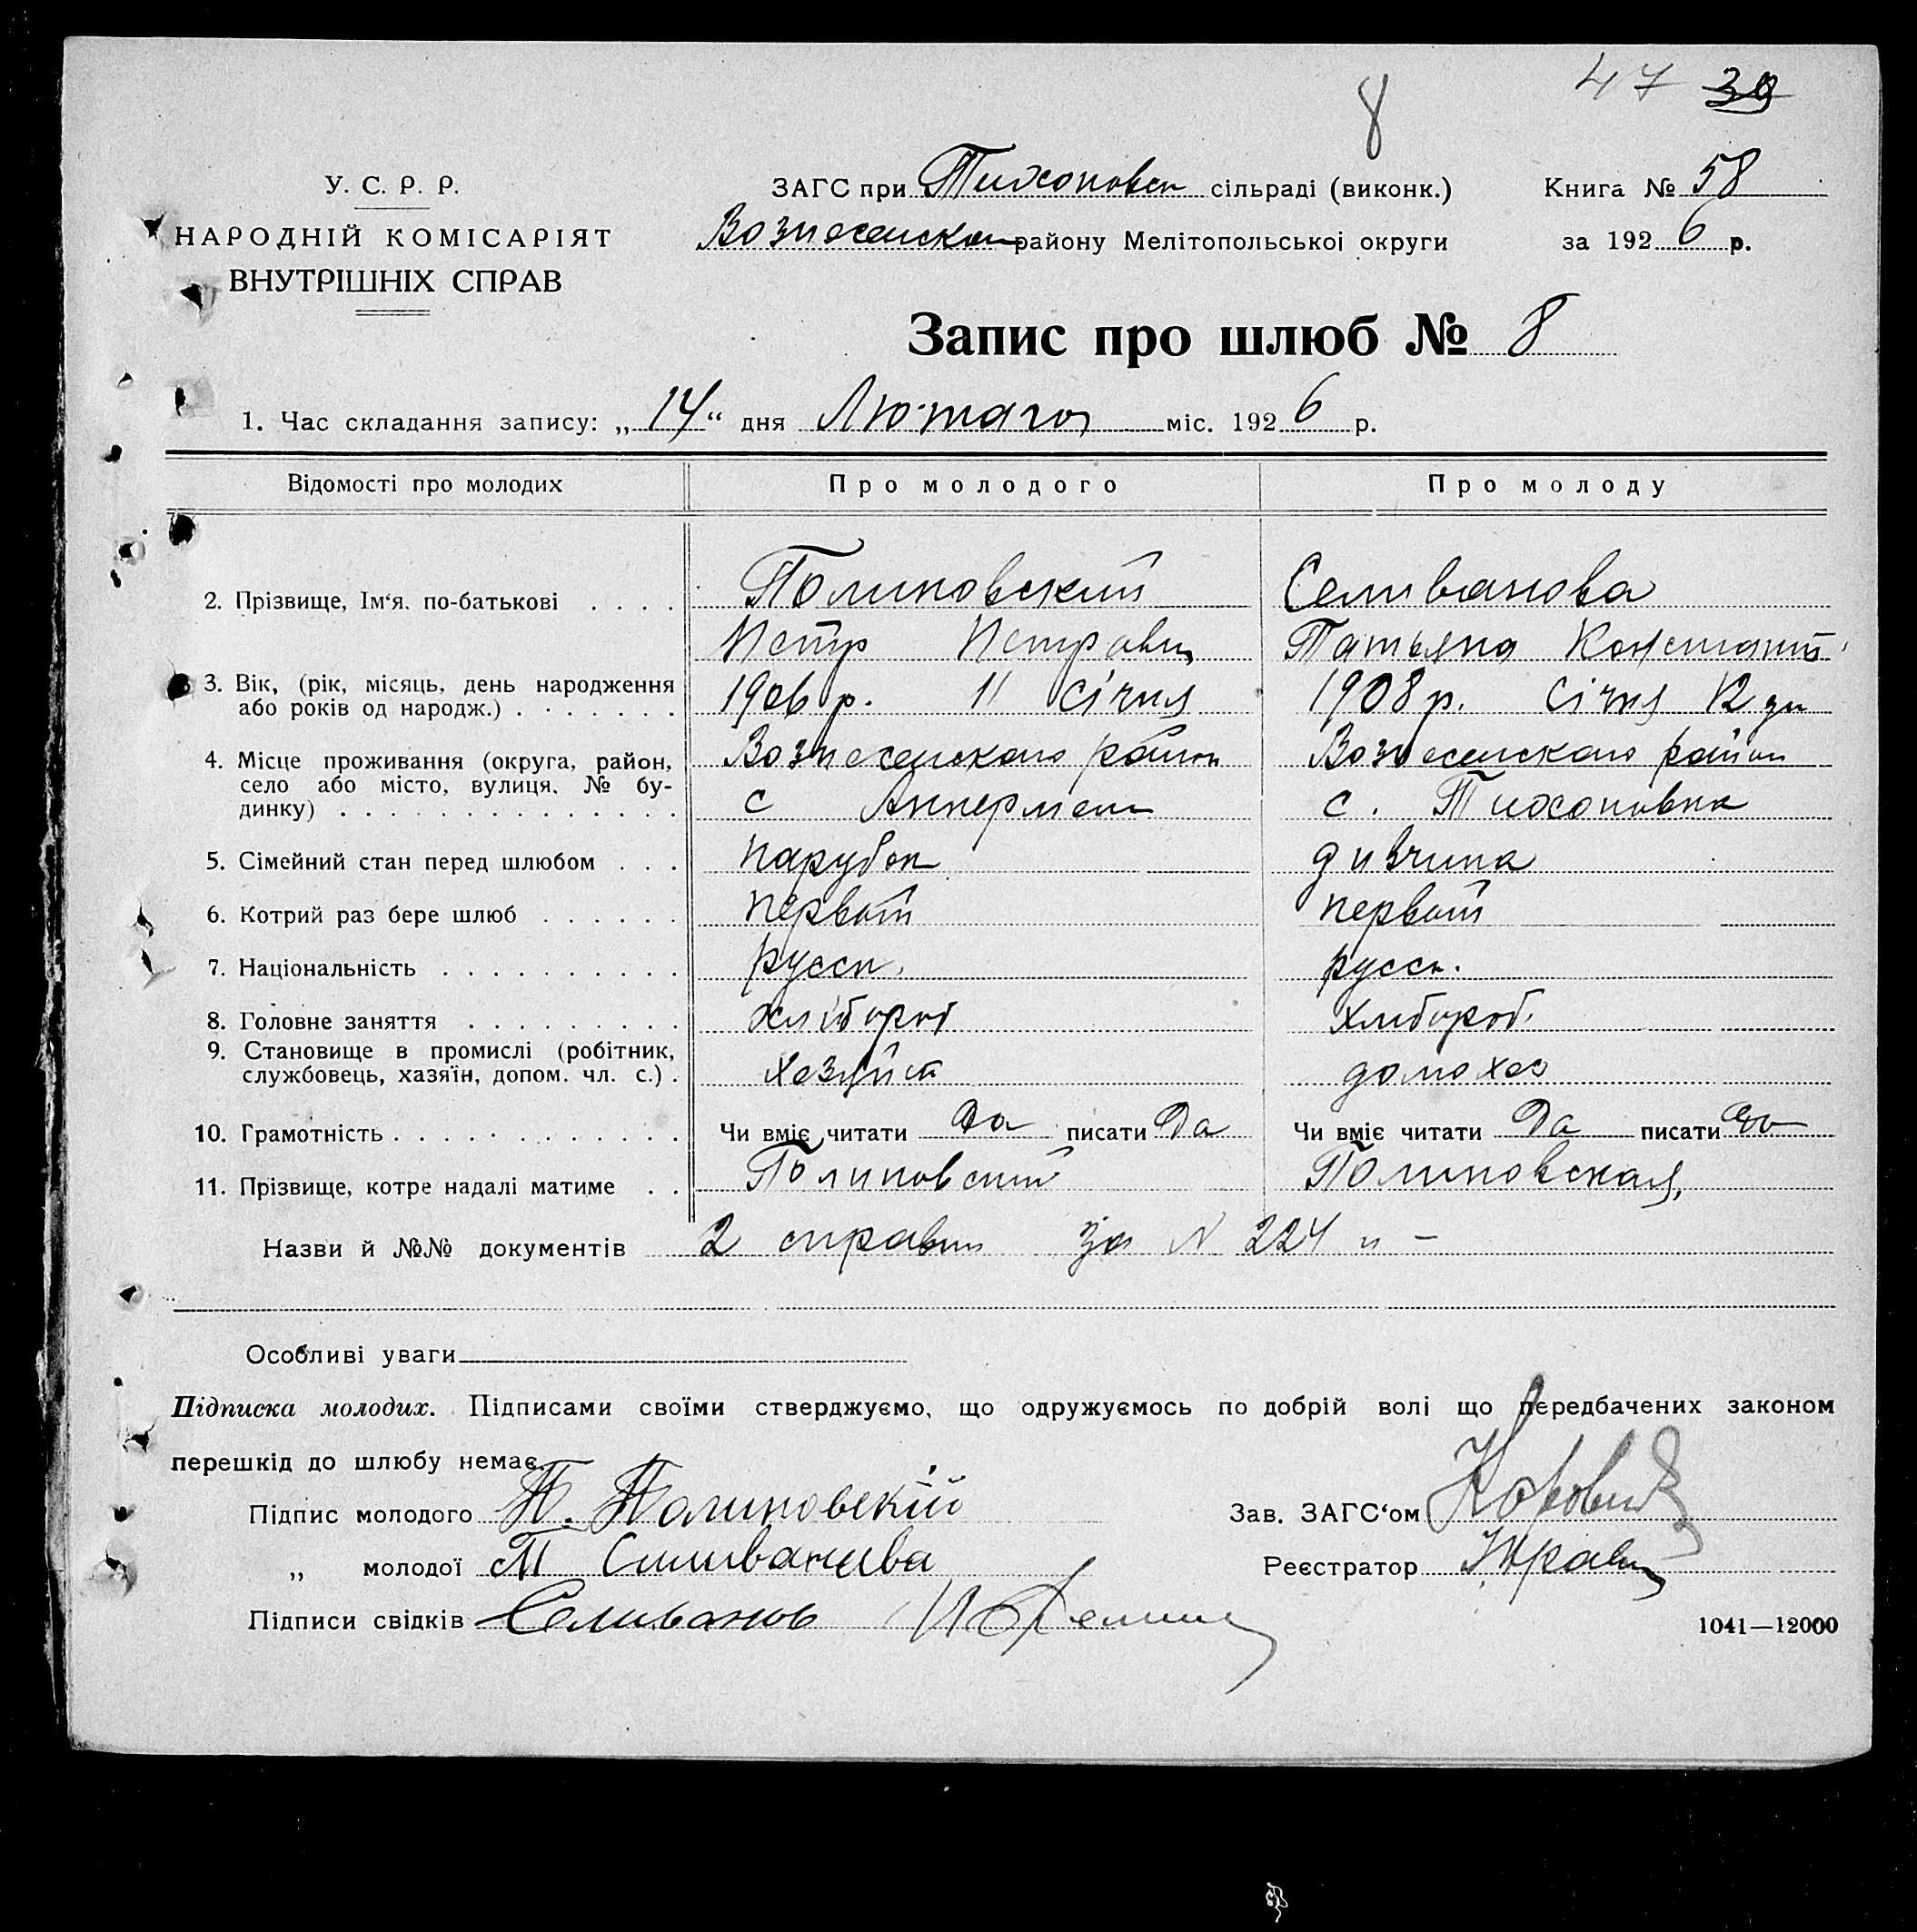 8 47 39
У. С. Р. Р. ЗАГС при Тихоновск сільраді (виконк.) Книга № 58
НАРОДНІЙ КОМІСАРІЯТ Вознесенском району Мелітопольської округи за 1926 р.
ВНУТРІШНІХ СПРАВ
Запис про шлюб № 8
1. Час складання запису: „14“ дня Лютаго міс. 1926 р.
Відомості про молодих Про молодого Про молоду
Полиновский Селиванова
2. Прізвище, Ім‘я, по-батькові . . . .
Петр Петрович Татьяна Констант
3. Вік, (рік, місяць, день народження 1906 р. 11 Січня 1908 р. Січня 12 дн
або років од народж.) . . . . . . .
4. Місце проживання (округа, район, Вознесенского район Вознесенского район
село або місто, вулиця, № бу- с Аккермен с. Тихоновка
динку) . . . . . . . . . . . . . .
5. Сімейний стан перед шлюбом . . . парубок дивчина
6. Котрий раз бере шлюб . . . . . . первый первый
7. Національність . . . . . . . . . . русск. русск.
8. Головне заняття . . . . . . . . . хлібороб хлибороб.
9. Становище в промислі (робітник,
службовець, хазяїн, допом. чл. с.) . хозяйин домохоз
10. Грамотність . . . . . . . . . . . . . Чи вміє читати да писати Да Чи вміє читати Да писати да
11. Прізвище, котре надалі матиме . . Полиновский Полиновская,
Назви й №№ документів 2 справки за N 224 и -
Особливі уваги
Підписка молодих. Підписами своїми стверджуємо, що одружуємось по добрій волі що передбачених законом
перешкід до шлюбу немає.
Підпис молодого П. Полиновскій Зав. ЗАГС‘ом
„ молодої Т Силиванова Реєстратор
Підписи свідків Селиванов
1041—12000